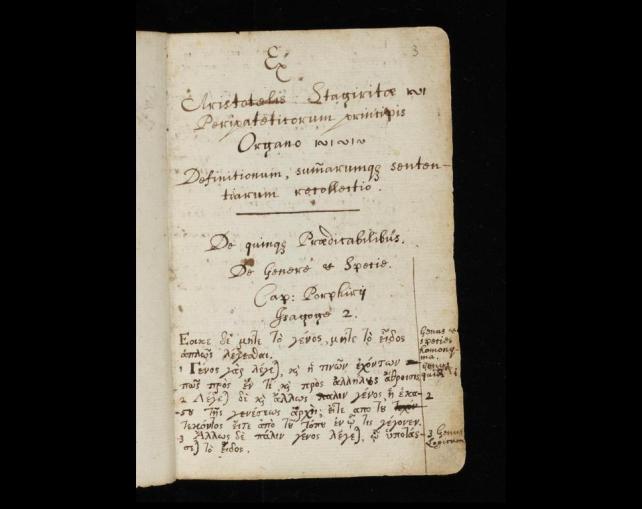 3
Ex
Aristotelis Stagiritæ
Peripateticorum principis
Organo
Definitionum, sum̄arumqꝫ senten-
tiarum recollectio.
De quinqꝫ Prædicabilibus.
De Genere et Specie.
Cap: Porphirij
Isagoge 2.
Εοικε δὲ μητε τὸ γένος, μητε τὸ εἶδος
ἁπλῶς λέγεσθαι.
1 Γένος γὰρ λέγε), ϗ ἡ τινῶν ἐχόντων
πως πρὸς ἕν τι ϗ πρὸς ἀλλήλȣς ἄθροισις
2 Λέγε) δὲ ϗ ἄλλως πάλιν γένος ἡ ἑκά-
στȣ τῆς γενέσεως ἀρχὴ, εἴτε απο τȣ
τεκόντος εἴτε ἀπὸ τȣ τόπȣ ἐν ᾧ τις γέγονεν.
3 Ἄλλως δὲ πάλιν γένος λέγε), ᾧ ὑποτάσ-
σε) τὸ εἶδος.
Genus et
species
homony-
ma.
2
3 Genus
Logicum